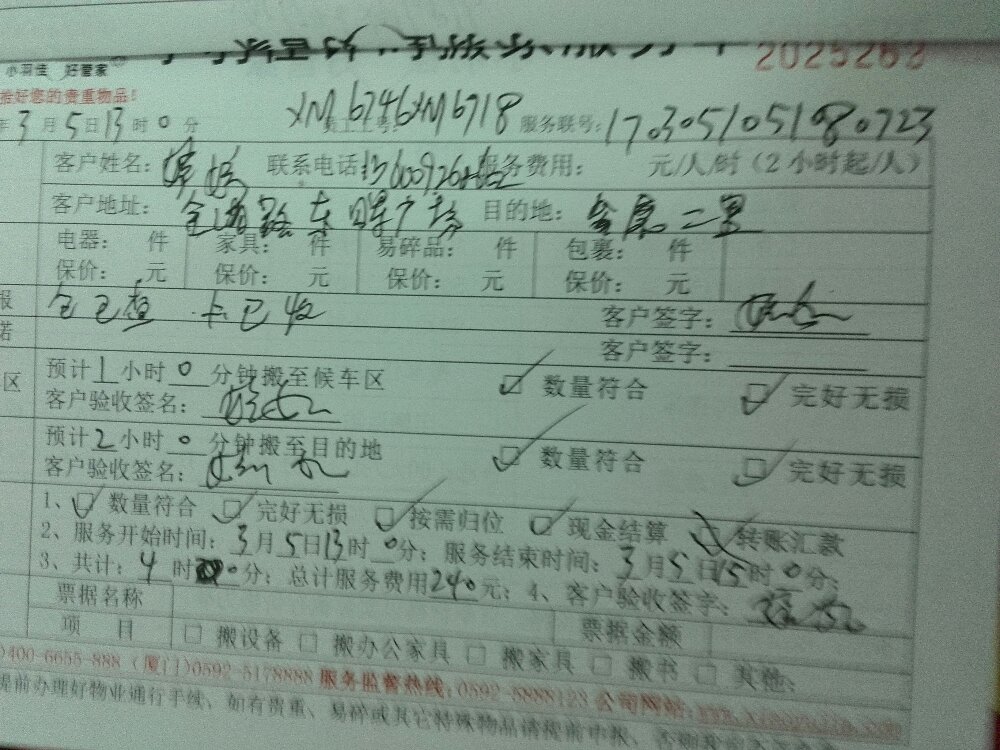 2025263
小羽佳 好管家
拾好您的贵重物品!
年3月5日13时0分 XM6746XM6718 服务联号:170305105180723
客户姓名: 联系电话: 服务费用: 元/人/时(2小时起/人)
客户地址: 东 广场 目的地: 二里
电器: 件 家具: 件 易碎品: 件 包裹: 件
保价: 元 保价: 元 保价: 元 保价: 元
报 全已查 卡已收 客户签字:
诺 客户签字:
区 预计1小时0分钟搬至候车区 数量符合 完好无损
客户验收签名:
预计2小时0分钟搬至目的地 数量符合 完好无损
客户验收签名:
1、数量符合 完好无损 按需归位 现金结算 转账汇款
2、服务开始时间:3月5日13时0分;服务结束时间:3月5日15时0分;
3、共计:4时0分;总计服务费用240元;4、客户验收签字:
票据名称 票据金额
项 目 搬设备 搬办公家具 搬家具 搬书 其他:
)400-6655-888(厦门)0592-5178888 服务监督热线:0592-5888123 公司网站:
提前办理好物业通行手续,如有贵重、易碎或其它特殊物品请提前申报,否则